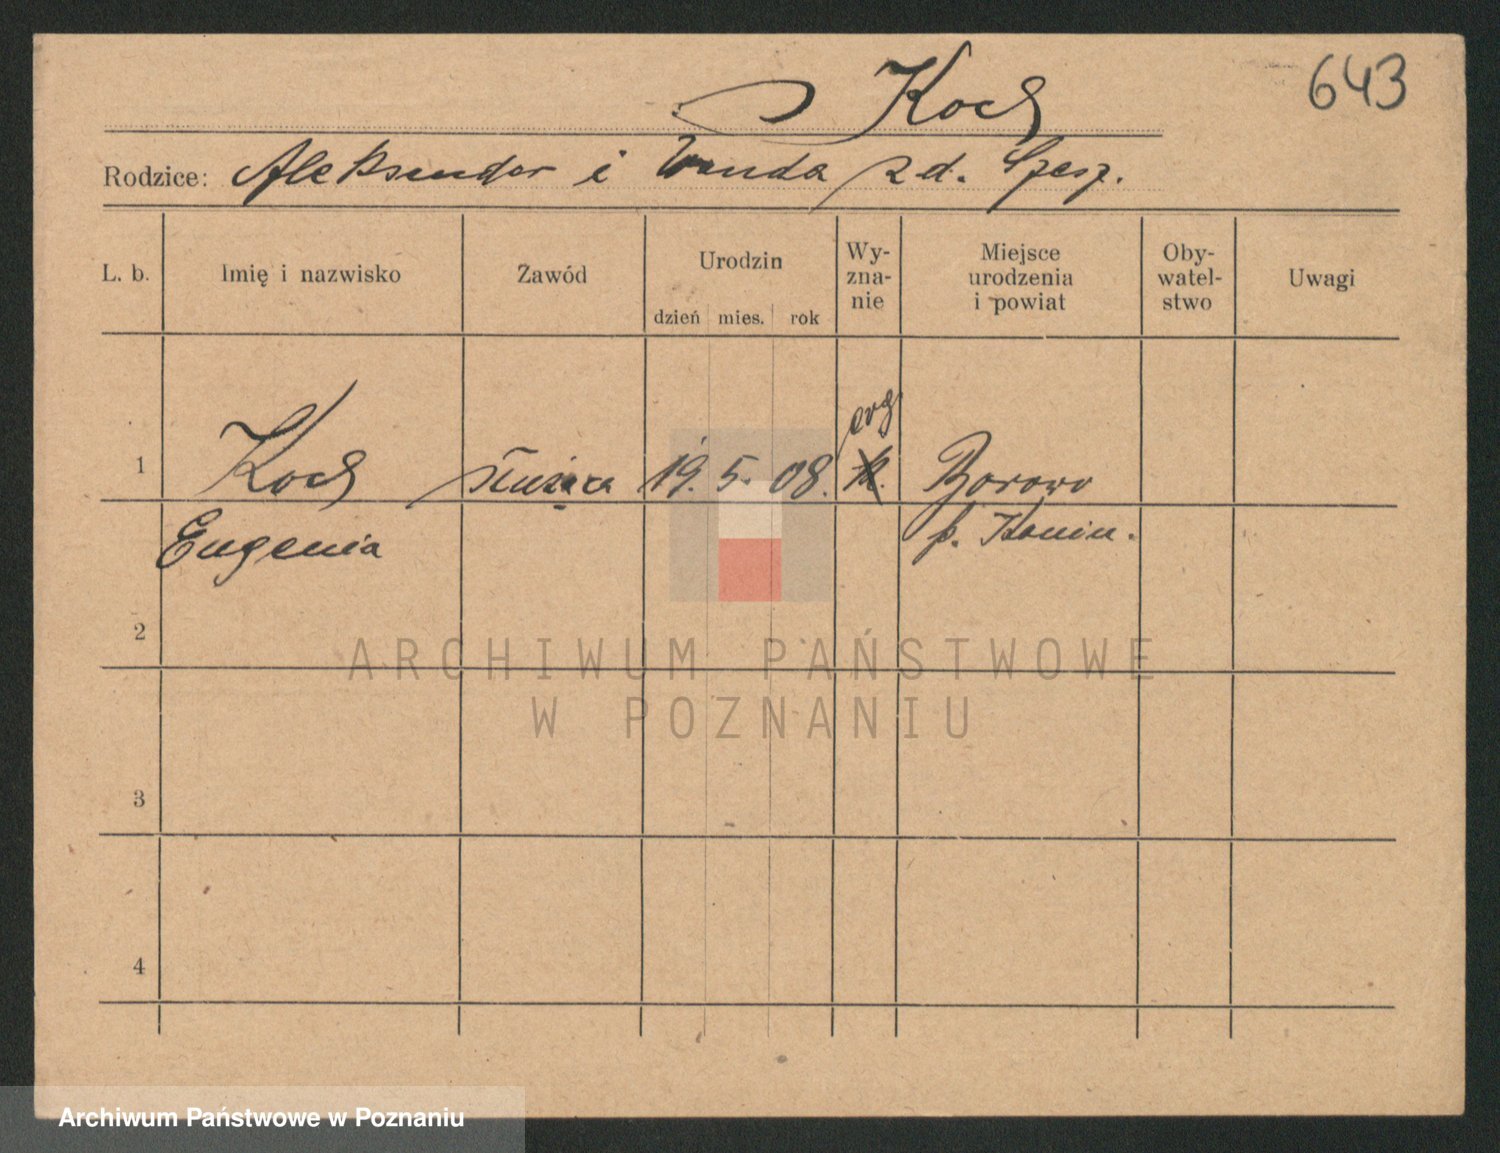 643
Koch
Rodzice: Aleksander i Wanda zd. Szesz.
L. b.
Imię i nazwisko
Zawód
Urodzin
dzień mies. rok
Wy-
zna-
nie
Miejsce
urodzenia
i powiat
Oby-
watel-
stwo
Uwagi
evg
1 Koch służąca 19. 5. 08. Borowo
Eugenia p. Konin.
2
3
4
ARCHIWUM PAŃSTWOWE
W POZNANIU
Archiwum Państwowe w Poznaniu